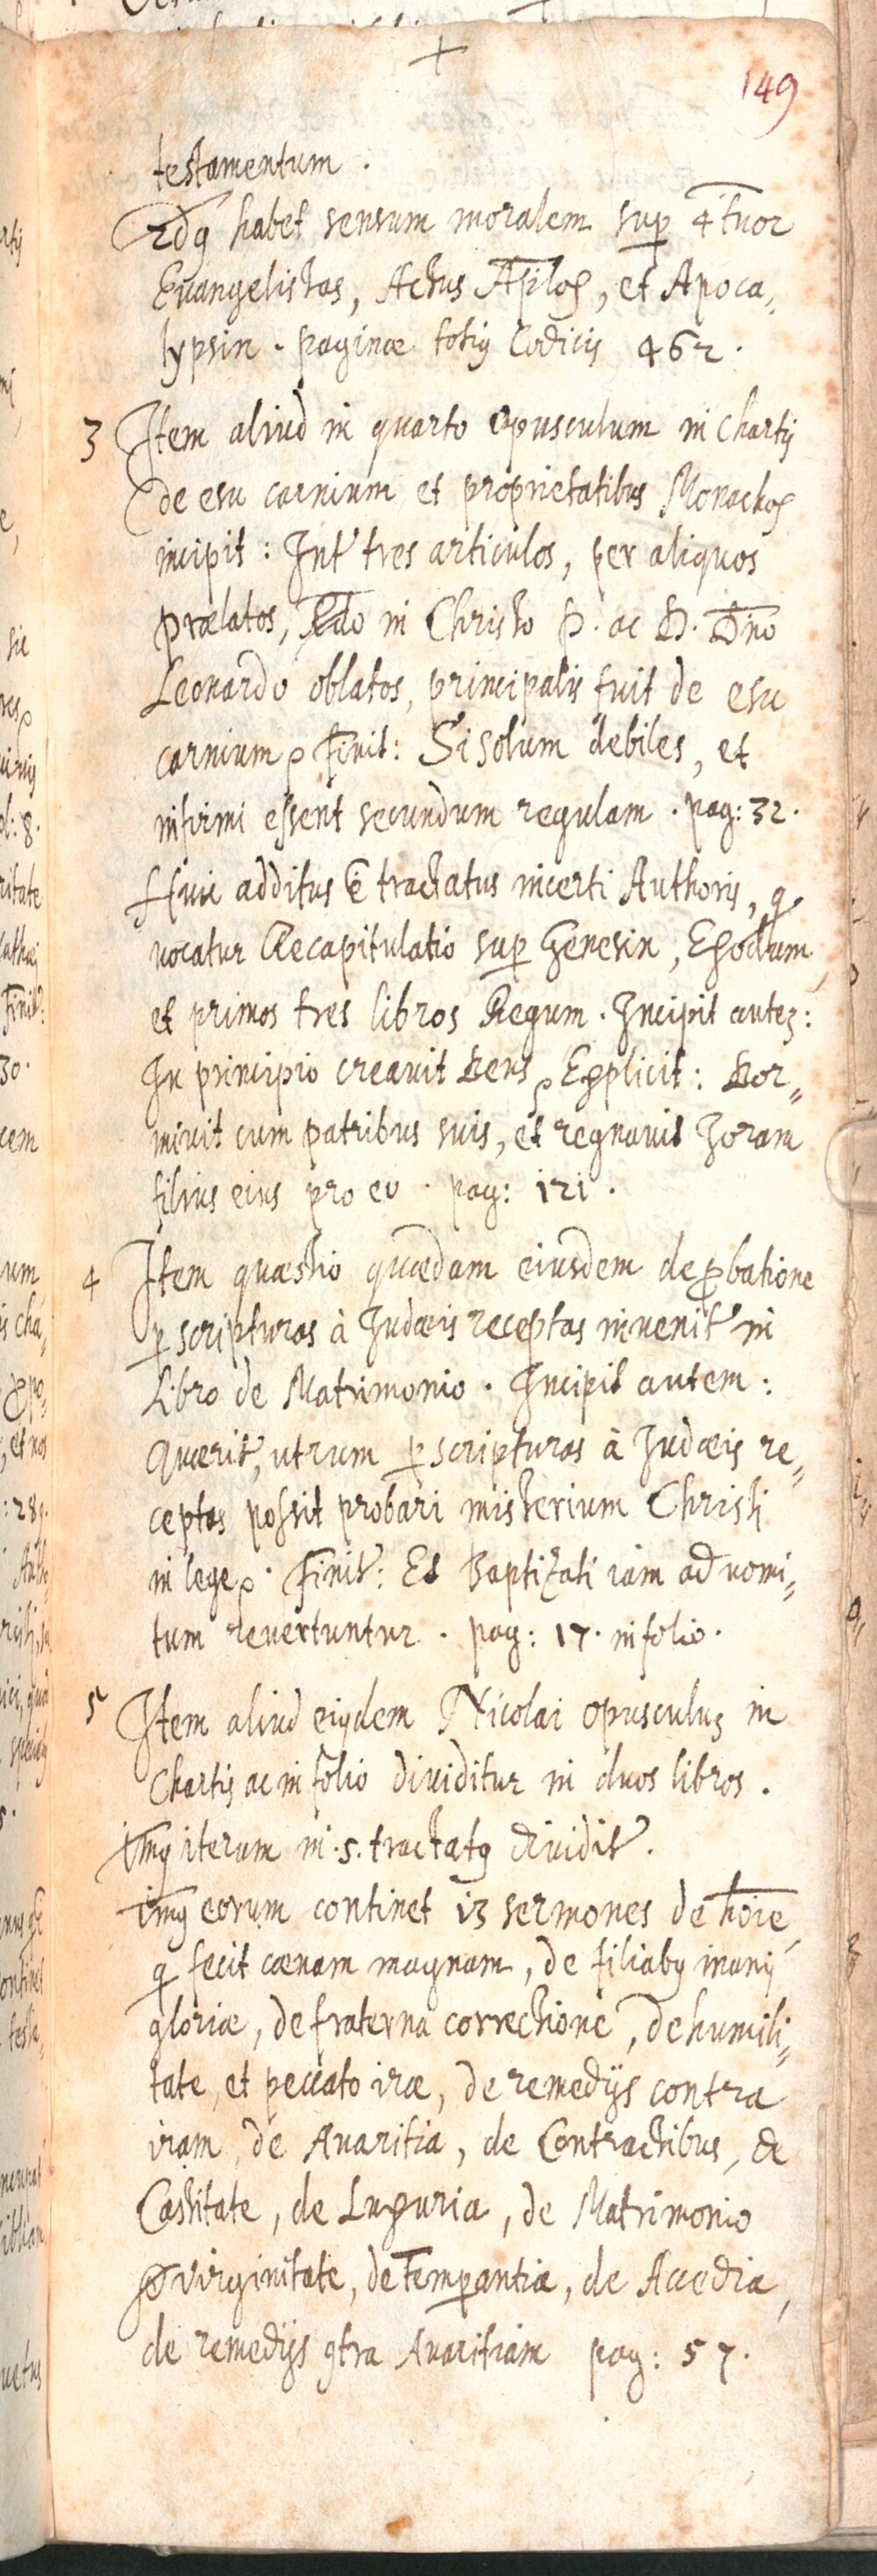 +
149
testamentum .
2dꝰ habet sensum moralem sup 4tuor
Euangelistas, Actus Aplōꝝ, et Apoca„
lypsin . paginæ totiꝰ Codicis 462 .
3 Item aliud in quarto opusculum in chartis
de esu carnium et proprietatibus Monachoꝝ
incipit : Int' tres articulos, per aliquos
prælatos, Rdo in Christo P. ac D. Dno
Leonardo oblatos, principalis fuit de esu
carnium finit: Si solum debiles, et
infirmi essent secundum regulam . pag: 32 .
Huic additus ē tractatus incerti Authoris, q
uocatur Recapitulatio sup Genesin, Exodum,
et primos tres libros Regum . Incipit autez :
In principio creauit Deus Explicit : Dor„
miuit cum patribus suis, et regnauit Joram
filius eius pro eo . pag: 121 .
4 Item quæstio quædam eiusdem de ꝓbatione
ꝑ scripturas à Judæis receptas inuenit' in
Libro de Matrimonio . Incipit autem :
Quærit', utrum ꝑ scripturas à Judæis re„
ceptas possit probari misterium Christi
in lege . finit' : Et Baptizati iam ad uomi„
tum reuertuntur . pag: 17 . in folio .
5 Item aliud eiꝰdem Nicolai opusculuz in
Chartis ac in folio diuiditur in duos libros .
1mꝰ iterum in .5. tractatꝰ diuidit' .
1mꝰ eorum continet 13 sermones de hoīe,
q fecit cænam magnam, de filiabꝰ inanis
gloriæ, de fraterna correctione, de humili„
tate, et peccato iræ, de remedijs contra
iram, de Auaritia, de Contractibus, de
Castitate, de Luxuria, de Matrimonio
de virginitate, de Temꝑantia, de Accedia,
de remedijs ꝯtra Auaritiam pag: 57 .